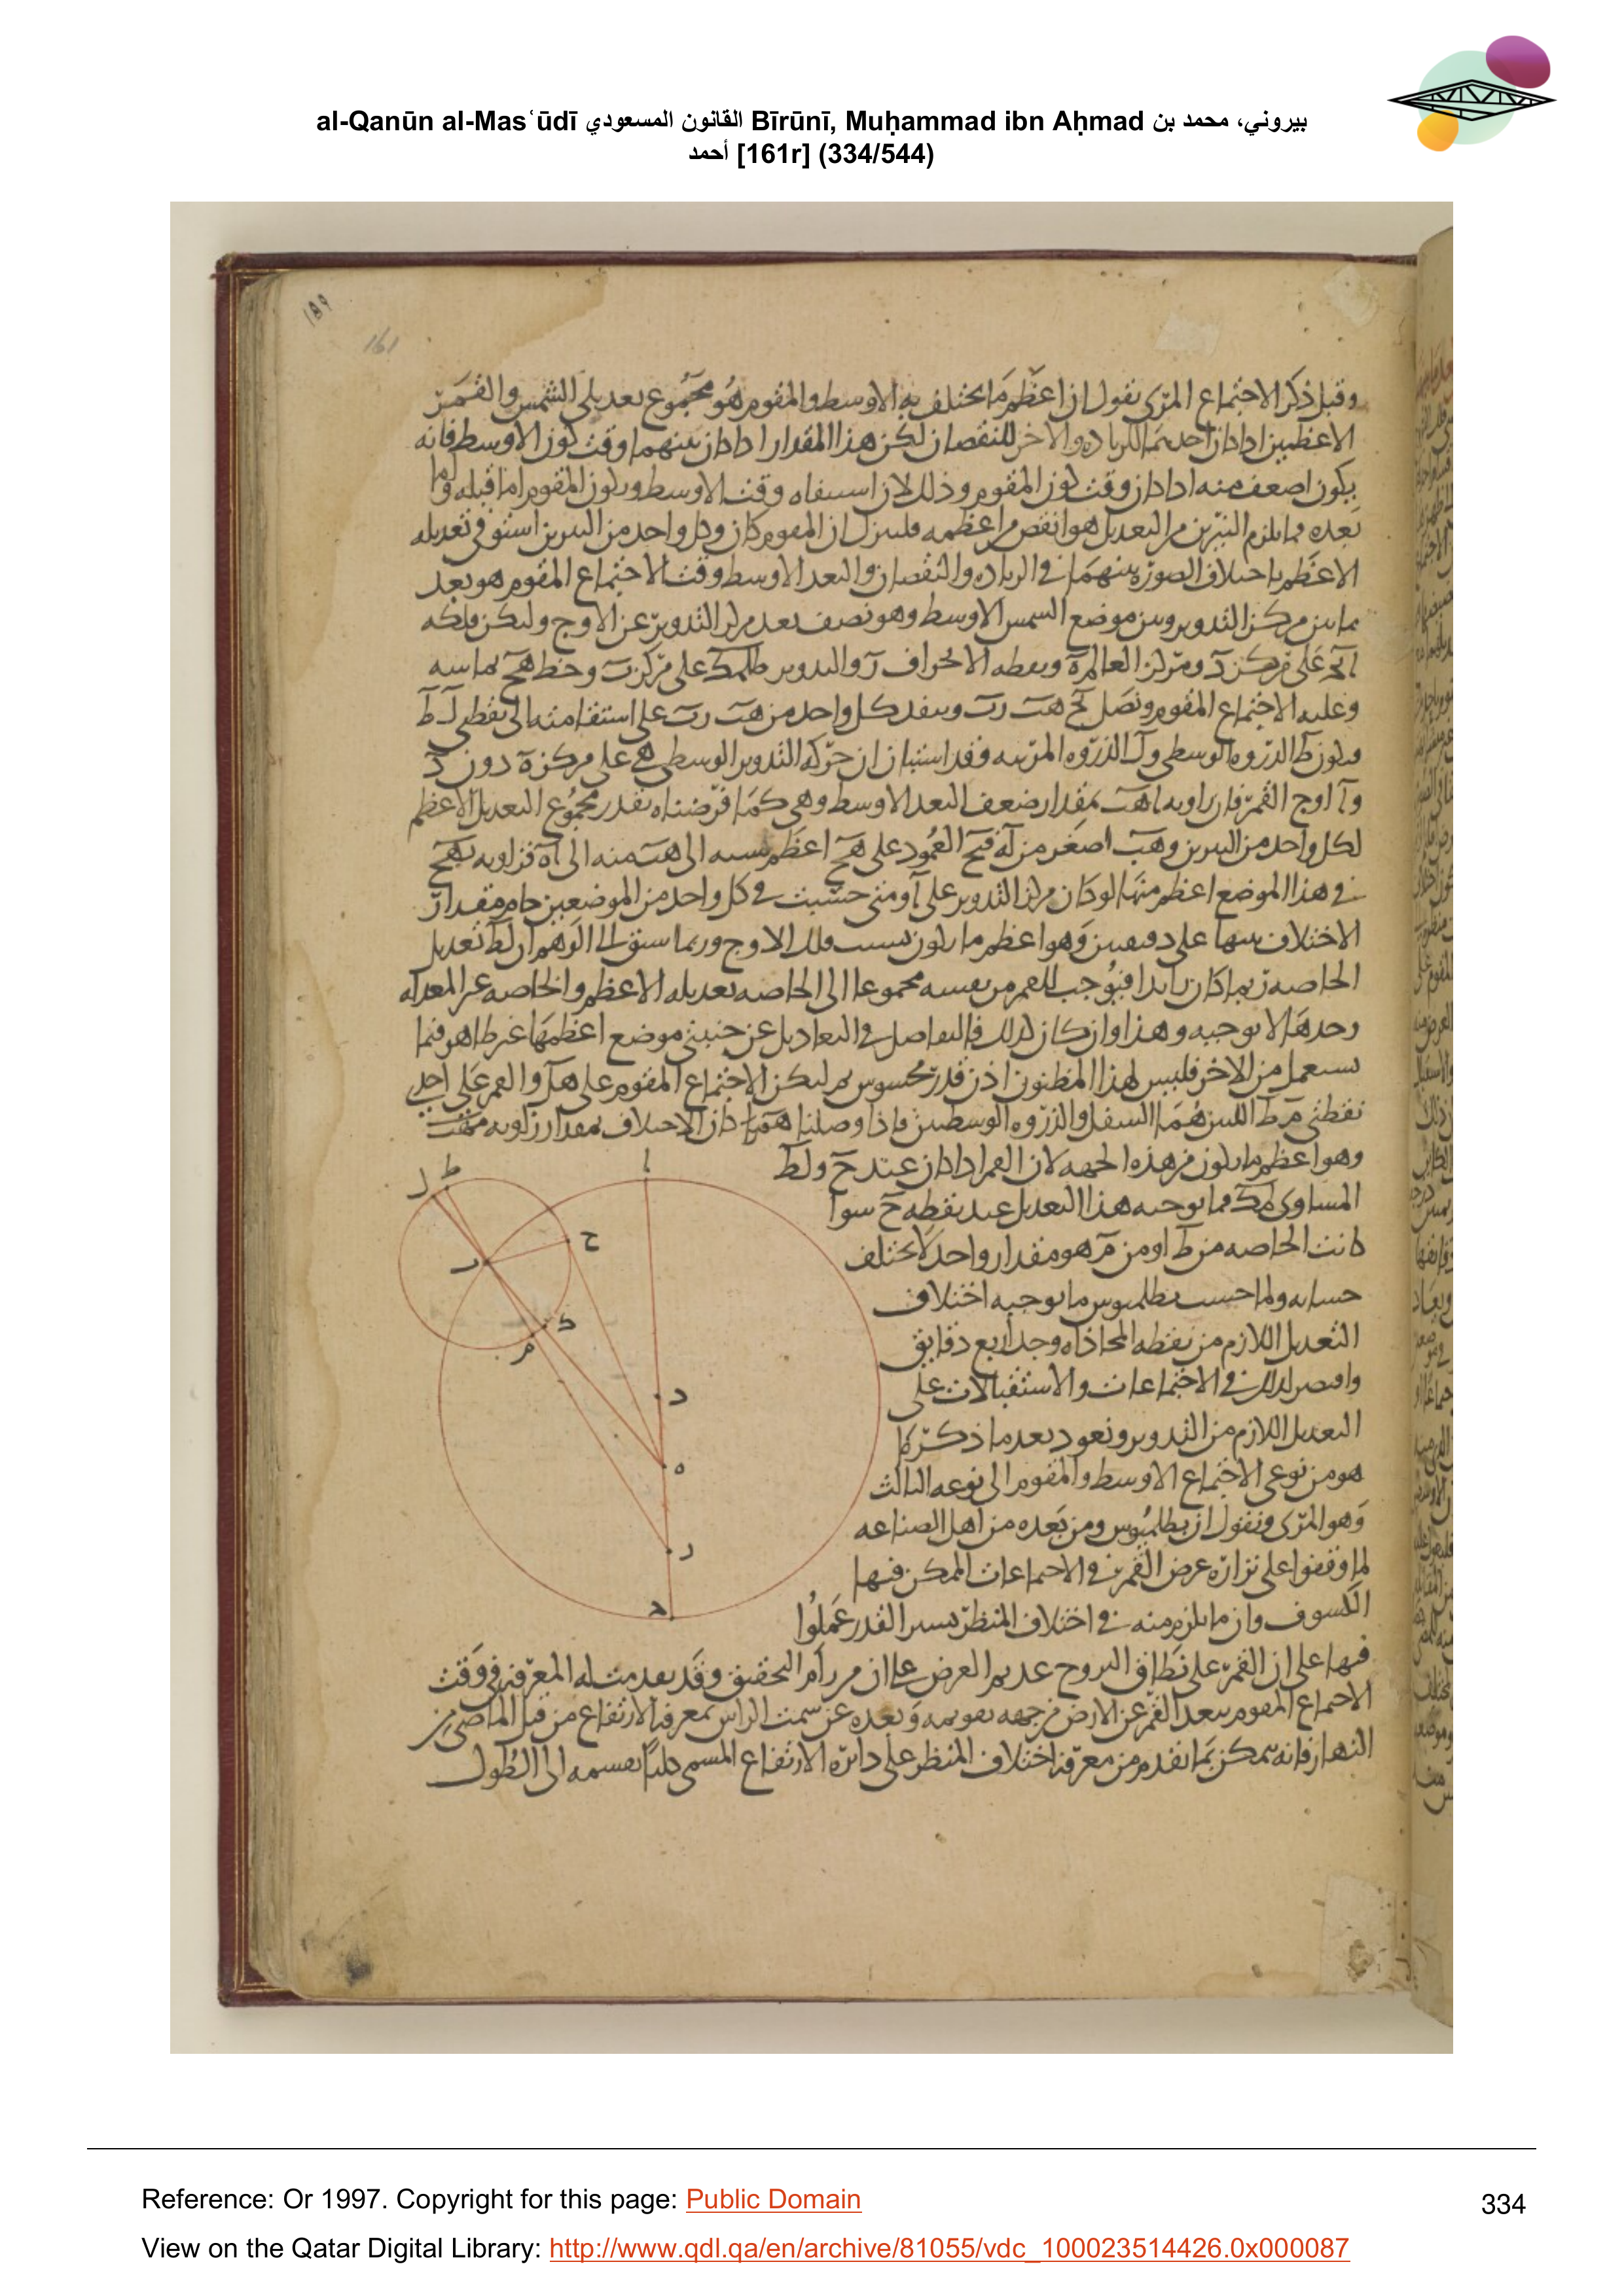 al-Qanūn al-Masʿūdī القانون المسعودي Bīrūnī, Muḥammad ibn Aḥmad بيروني، محمد بن
أحمد [161r] (334/544)
١٥٩
161
وقبل ذكر الاجتماع المرى نقول ان اعظم ما يختلف به الاوسط والمقوم هو مجموع تعديلى الشمس والقمر
الاعظمين اذا كان احدهما للزيادة والاخر للنقصان لكن هذا المقدار اذا كان بينهما وقت كون الاوسط فانه
يكون اضعف منه اذا كان وقت كون المقوم وذلك لان وقت الاوسط ويكون المقوم اما قبله واما
بعده مما يلزم النيرين من التعديل هو انقص من اعظمه فلننزل ان المقوم كان وكل واحد من النيرين استوفى تعديله
الاعظم باختلاف الصورة بينهما فى الزيادة والنقصان والبعد الاوسط وقت الاجتماع المقوم هو بعد
ما بين مركز التدوير وبين موضع الشمس الاوسط وهو نصف بعد مركز التدوير عن الاوج وليكن فلكه
ابج على مركز د ومركز العالم ه ونقطه الانحراف ر والتدوير طلمك على مركز ب وخط هح يماسه
وعليه الاجتماع المقوم ونصل بح هب رب وينفذ كل واحد من هب رب على استقامته الى نقطتى ل ط
فيكون ط الذروه الوسطى و ل الذروه المرئيه وقد استبان ان حركه التدوير الوسطى هى على مركز ه دون د
و ا اوج القمر فان زاويه اهب بمقدار ضعف البعد الاوسط وهى كما فرضناه بقدر مجموع التعديل الاعظم
لكل واحد من النيرين و هب اصغر من اه فبح العمود على هح اعظم نسبه الى هب منه الى اه فزاويه بهح
فى هذا الموضع اعظم منها لو كان مركز التدوير على ا ومتى حسبت فى كل واحد من الموضعين حام مقدار
الاختلاف بينها على دقيقتين وهو اعظم ما يكون بسبب فلك الاوج وربما سبق الى الوهم ان لط تعديل
الخاصه ربما كان زايدا فيوجب للقمر من نفسه مجموعا الى الخاصه تعديله الاعظم والخاصه غير المعدله
وحدها لا توجبه وهذا وان كان كذلك فالتفاضل فى التعاديل عن جنبتى موضع اعظمها غير ظاهر فيما
يستعمل من الاخر فليس لهذا المظنون اذن قدر محسوس ثم ليكن الاجتماع المقوم على هل والقمر على احدى
نقطتى م ط اللتين هما السفل والذروه الوسطيين فاذا وصلنا هم كان الاختلاف بمقدار زاويه مهب
وهو اعظم ما يكون من هذه الجهه لان القمر اذا كان عند ح و لط
المساوى لمك مما يوجبه هذا التعديل عند نقطه ح سوا
كانت الخاصه من ط او من م هو مقدار واحد لا يختلف
حسابه ولما حسب بطلميوس ما يوجبه اختلاف
التعديل اللازم من نقطه المحاذاه وجد اربع دقايق
واقتصر لذلك فى الاجتماعات والاستقبالات على
التعديل اللازم من التدوير ونعود بعد ما ذكرنا
هو من نوعى الاجتماع الاوسط والمقوم الى نوعه الثالث
وهو المرى ونقول ان بطلميوس ومن بعده من اهل الصناعه
لما وقفوا على نزارة عرض القمر فى الاجتماعات الممكن فيها
الكسوف وان ما يلزم منه فى اختلاف المنظر يسير القدر عملوا
فيها على ان القمر على نطاق البروج عديم العرض على ان من رام التحقيق وقد تقدمت له المعرفه فى وقت
الاجتماع المقوم ببعد القمر عن الارض من جهه تقويمه وبعده عن سمت الراس بمعرفه الارتفاع من قبل الماضى من
النهار فانه يمكن بما تقدم من معرفه اختلاف المنظر على دائرة الارتفاع المسمى كليا تقسيمه الى الطول
ا
ط
ل
ح
ب
ك
م
د
ه
ر
ج
Reference: Or 1997. Copyright for this page: Public Domain
334
View on the Qatar Digital Library: http://www.qdl.qa/en/archive/81055/vdc_100023514426.0x000087